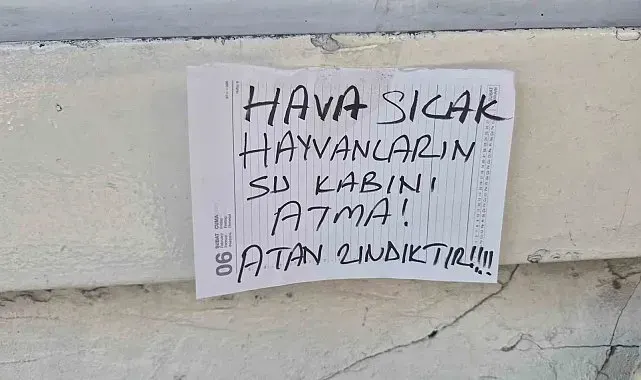 HAVA SICAK
HAYVANLARIN
SU KABINI
ATMA!
ATAN ZINDIKTIR!!!!
06 ŞUBAT CUMA